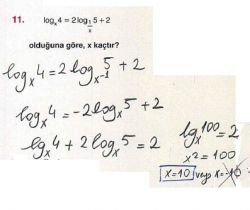 11. logₓ4 = 2log_{1/x} 5 + 2
olduğuna göre, x kaçtır?
logₓ4 = 2 log_{x⁻¹} 5 + 2
logₓ4 = -2logₓ5 + 2
lgₓ4 + 2 logₓ5 = 2
lgₓ100 = 2
x² = 100
x = 10 veya x = -10